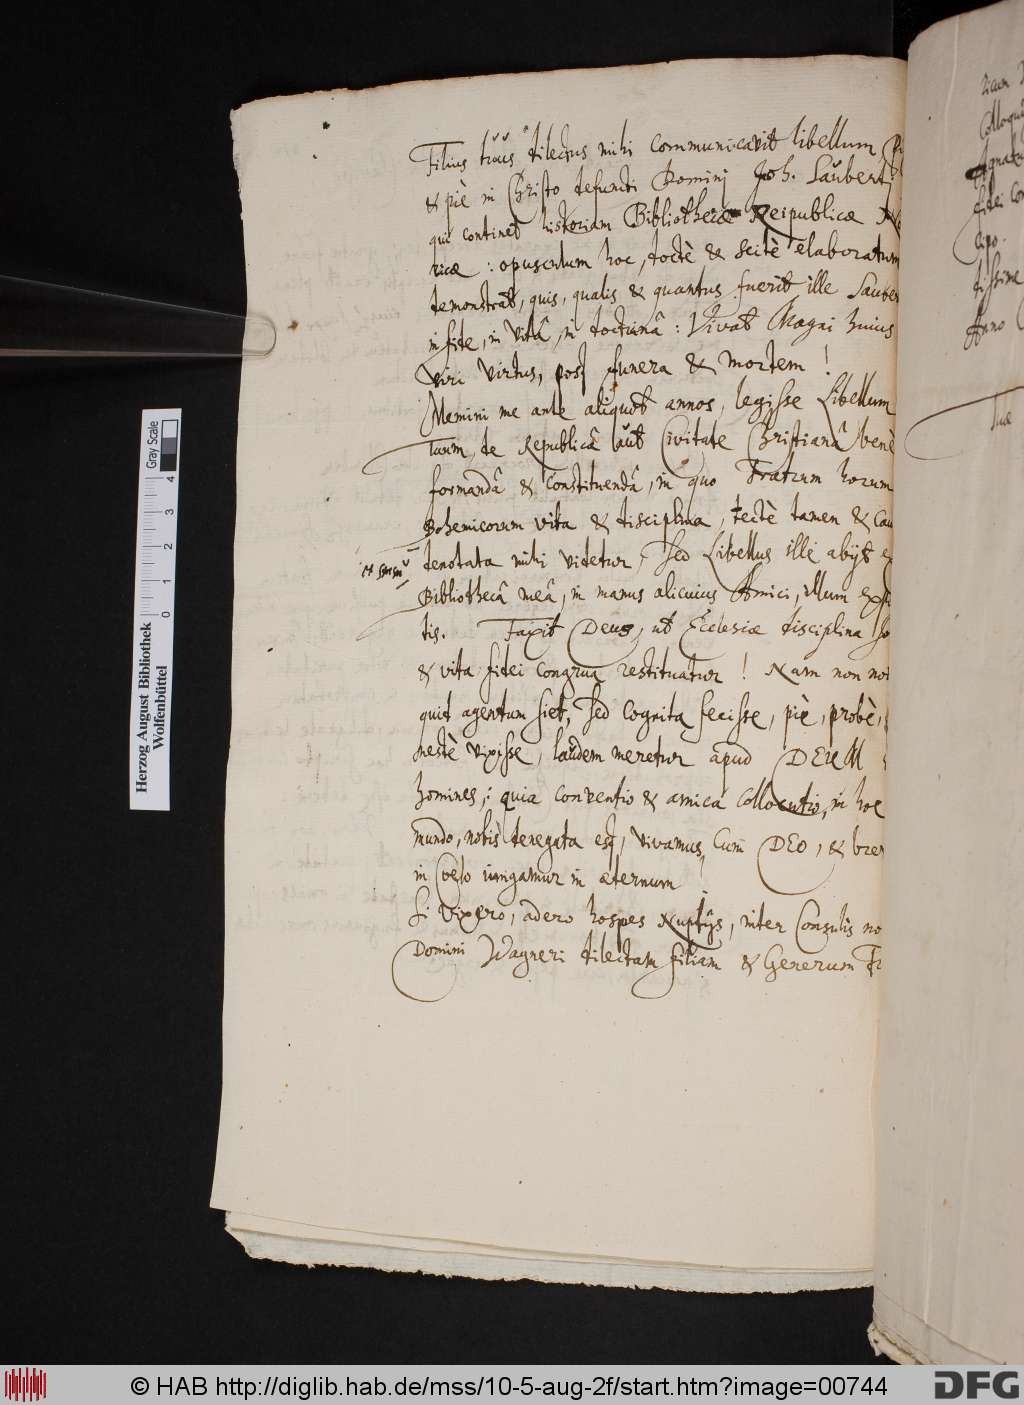 Filius tuus dilectus mihi communicavit libellum,
& piè in Christo defuncti Domini Joh. Sauberti
qui continet historiam Bibliothecæ Reipublicæ
ricæ : opusculum hoc, doctè & scitè elaboratum
demonstrat, quis, qualis & quantus fuerit ille Sauber
in fide, in vitâ, in doctrinâ : Vivat Magni huius
viri virtus, post funera & mortem !
Memini me ante aliquot annos, legisse Libellum
Tuum, de Republicâ aut Civitate Christianâ benè
formandâ & Constituendâ, in quo Fratrum horum
Bohemicorum vita & disciplina, tectè tamen & cau
denotata mihi videtur, Sed Libellus ille abijt e
Bibliothecâ meâ, in manus alicuius Amici, illum ex
tis. Faxit Deus, ut Ecclesiæ disciplina
& vita fidei congrua restituatur ! Nam non no
quid agendum siet, sed cognita fecisse, piè, probè,
nestè vixisse, laudem meretur apud DEUM
homines : quia conventio & amica Collocutio, in hoc
mundo, nobis denegata est, vivamus Cum DEO, & brev
in Cœlo iungamur in æternum
Si vixero, adero hospes Nuptijs, inter Consulis no
Domini Wagneri dilectam filiam & Generum
ricam
Colloqui
fidei con
cipo.
tissime
Anno
tuæ
Herzog August Bibliothek
Wolfenbüttel
0 1 2 3 4
Gray Scale
© HAB http://diglib.hab.de/mss/10-5-aug-2f/start.htm?image=00744
DFG